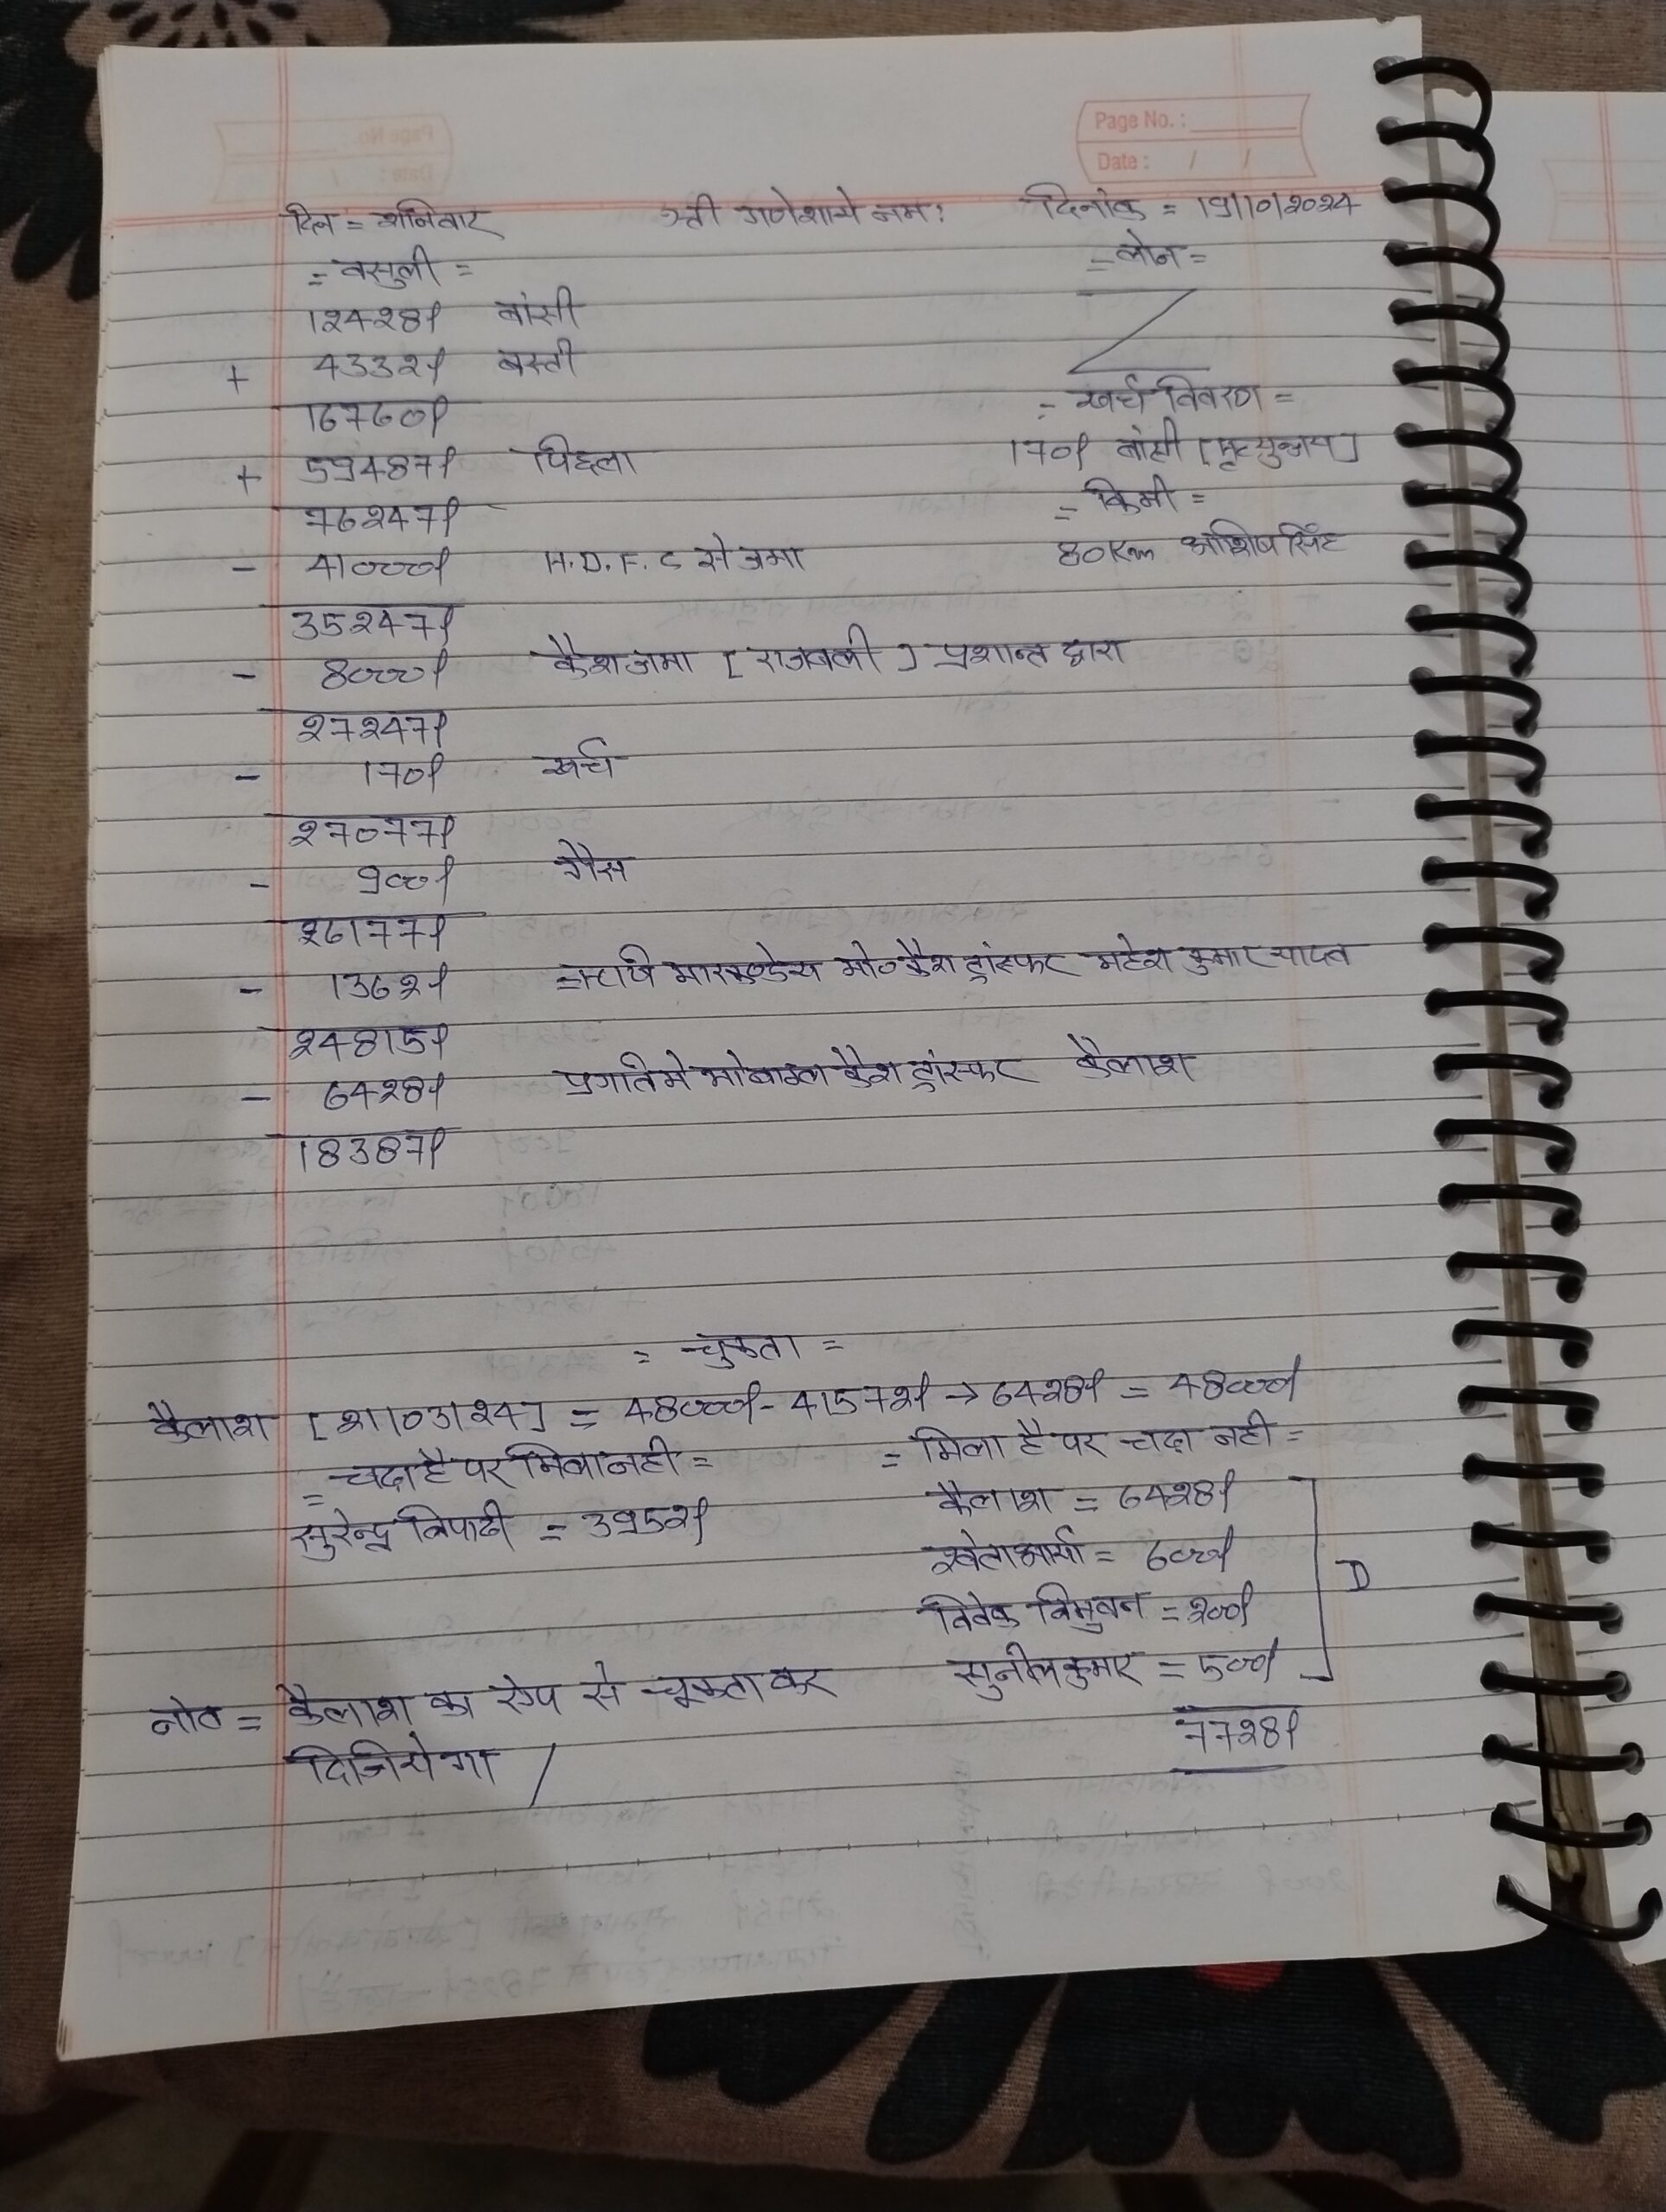 Page No. :
Date : / /
दिन = शनिवार श्री गणेशाये नमः दिनांक = 19/10/2024
= वसुली = = लोन =
12428/ बांसी
+ 4332/ बस्ती
16760/ = खर्च विवरण =
+ 59487/ पिछला 170/ बांसी [मृत्युन्जय]
76247/ = किमी =
- 41000/ H.D.F.C से जमा 80Km आशिष सिंह
35247/
- 8000/ कैश जमा [राजबली] प्रशान्त द्वारा
27247/
- 170/ खर्च
27077/
- 900/ गैस
26177/
- 1362/ ऋषि मारकण्डेय मो० कैश ट्रांस्फर महेश कुमार यादव
24815/
- 6428/ प्रगति मे मोबाइल कैश ट्रांस्फर कैलाश
18387/
= चुकता =
कैलाश [21/03/24] = 48000/- 41572/ → 6428/ = 48000/
= चढा है पर मिला नही = = मिला है पर चढा नही =
सुरेन्द्र त्रिपाठी = 3952/ कैलाश = 6428/
श्वेता आर्या = 600/
D
विवेक त्रिभुवन = 200/
नोट = कैलाश का ऐप से चुकता कर सुनील कुमार = 500/
दिजियेगा / 7728/